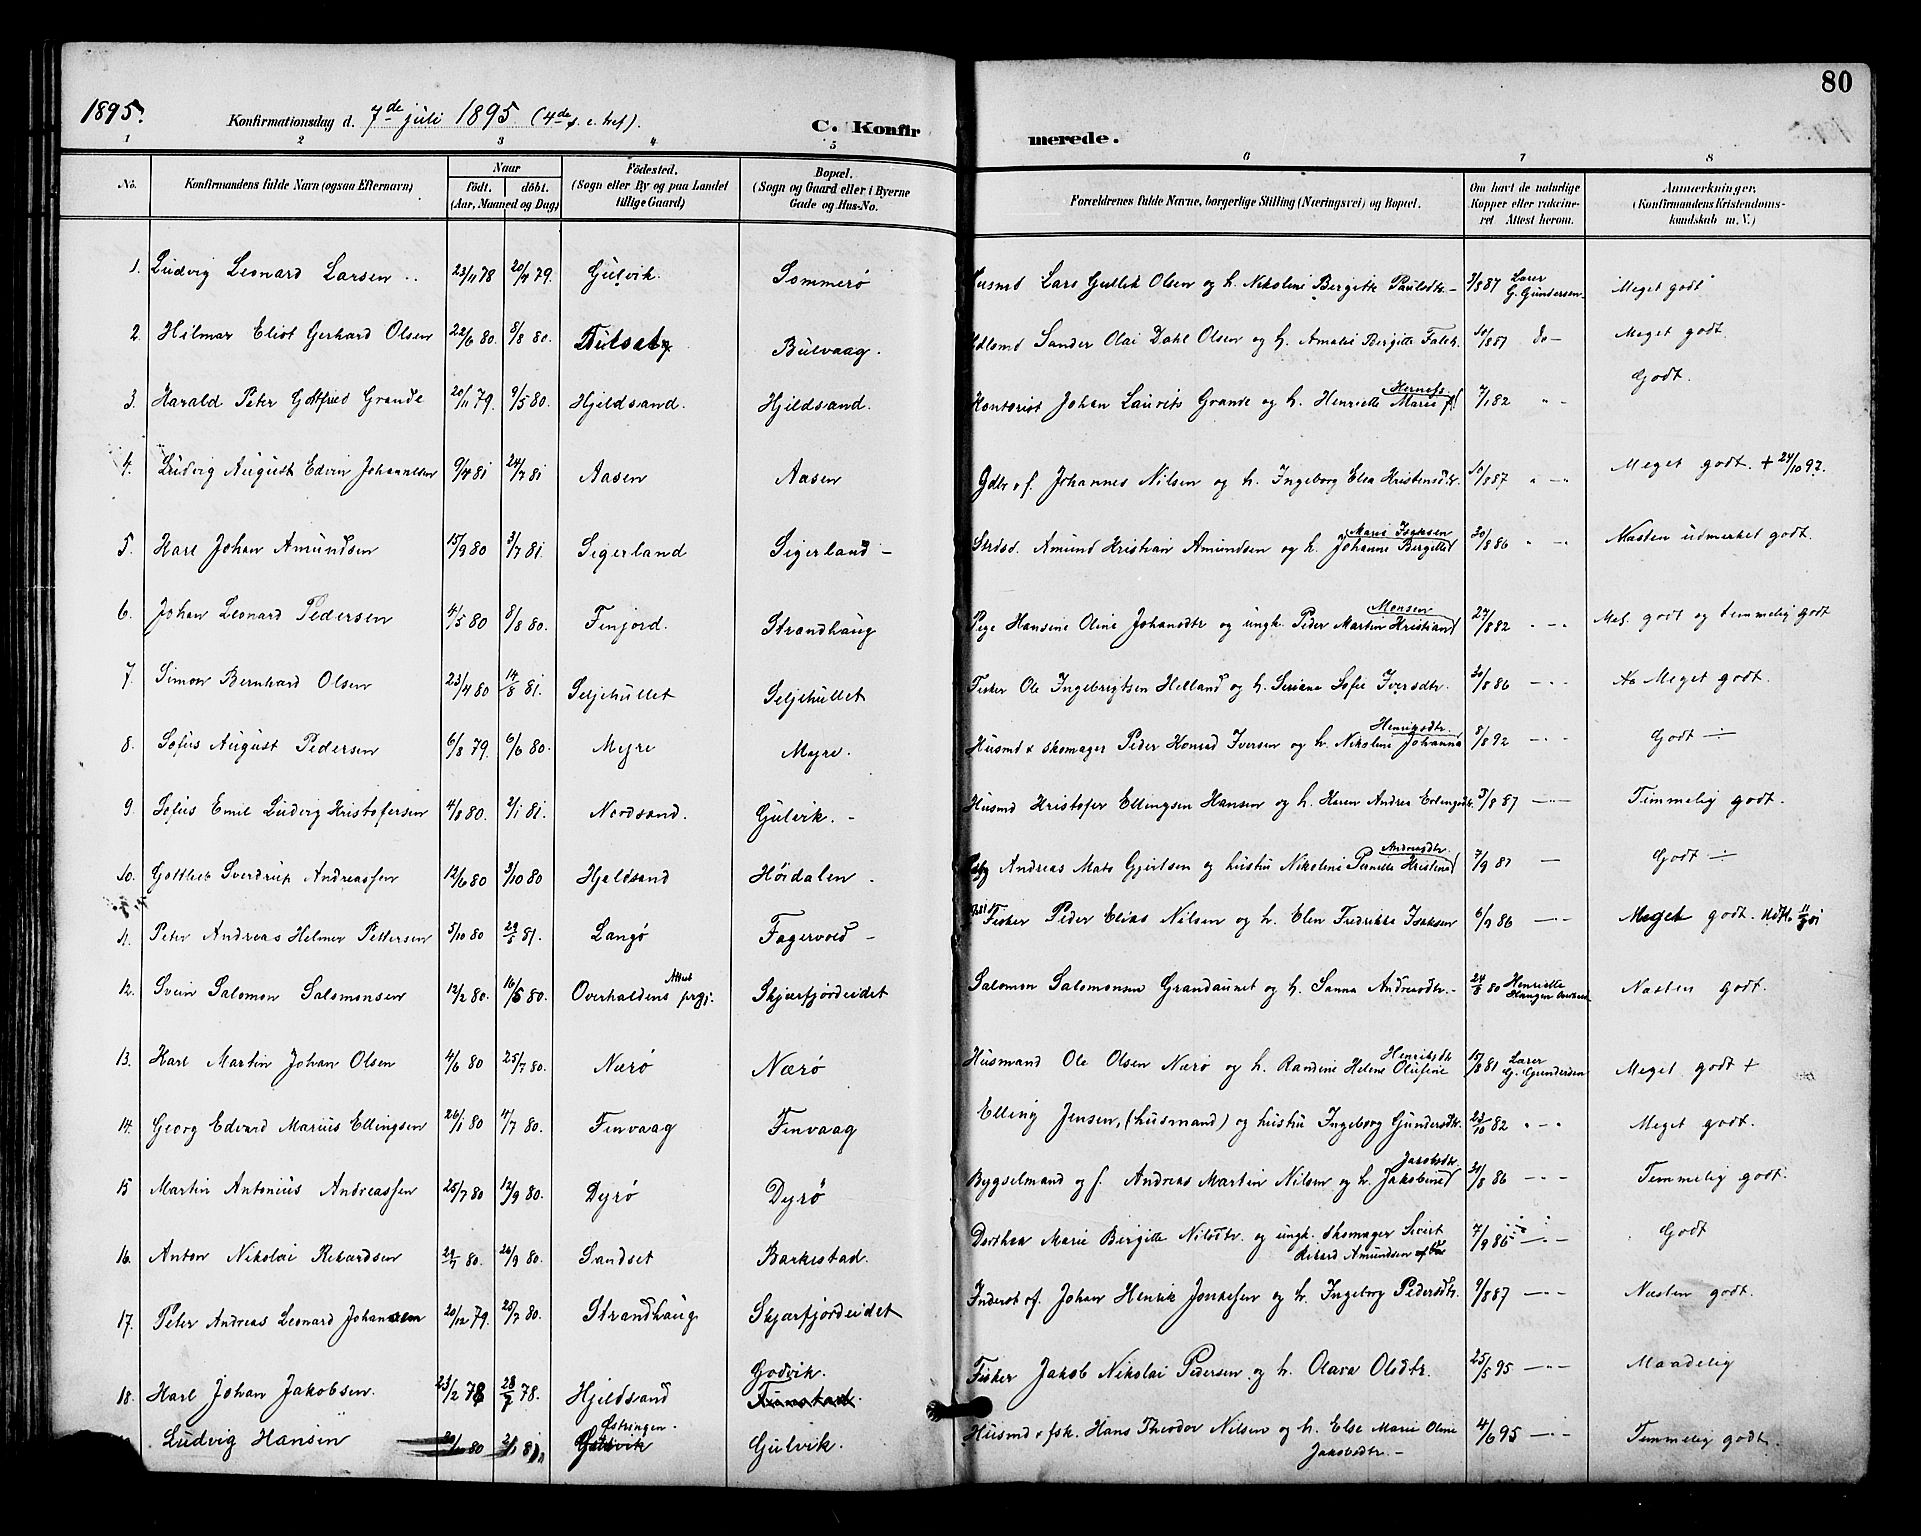 80
1895. Konfirmationsdag d. 7de juli 1895 (4de s. e. tref). C. Konfirmerede.
1 2 3 4 5 6 7 8
No. Konfirmandens fulde Navn (ogsaa Efternavn) Naar født. døbt. (Aar, Maaned og Dag) Födested. (Sogn eller By og paa Landet tillige Gaard) Bopæl. (Sogn og Gaard eller i Byerne Gade og Hus-No. Forældrenes fulde Navne, borgerlige Stilling (Næringsvei) og Bopæl. Om havt de naturlige Kopper eller vakcineret Attest herom. Anmærkninger. (Konfirmandens Kristendomskundskab m. V.)
1. Ludvig Leonard Larsen 23/11 78 20/4 79. Gulvik. Sommerø Husmd Lars Gullik Olsen og h. Nikoline Bergitte Paulsdtr. 3/8 87 Lærer G. Gundersen. Meget godt
2. Hilmar Eliot Gerhard Olsen 22/6 80. 8/8 80. Tilset Bulvaag. Sander Olai Dahl Olsen og h. Amalie Bergitte Falck. 10/8 87 do Meget godt
3. Harald Peter Gottfred Grande 20/11 79. 9/5 80. Hjeldsand. Hjeldsand. Kontorist Johan Laurits Grande og h. Henriette Marie 7/1 82 " Godt.
4. Ludvig August Edvin Johannessen 9/4 81 24/7 81 Aasen Aasen Johannes Nilsen og h. Ingeborg Elea Kristensdtr. 10/8 87 " Meget godt. + 24/10 97.
5. Karl Johan Amundsen 15/9 80 3/7 81. Sigerland Sigerland Strds. Amund Kristian Amundsen og h. Johanne Bergitte Marie Isaksen 20/8 86 " Næsten udmerket godt.
6. Johan Leonard Pedersen 4/5 80 8/8 80. Finjord. Strandhaug Pige Hansine Oline Johansdtr og ungk. Peder Martin Kristian Monsen 27/8 82 " Meg. godt og temmelig godt
7. Simon Bernhard Olsen 23/4 80 14/8 81. Seljehullet Seljehullet Fisker Ole Ingebrigtsen Helland og h. Seriane Sofie Iversdtr. 20/8 86 " Meget godt.
8. Sofus August Pedersen 6/8 79. 6/6 80. Myre Myre. Husmd & skomager Peder Konrad Iversen og h. Nikoline Johanna Henriksdtr. 8/8 92 " Godt
9. Sofus Emil Ludvig Kristofersen 4/8 80. 2/1 81. Nordsand. Gulvik. Husmd Kristofer Ellingsen Hansen og h. Karen Andrea Erlingsdtr. 3/8 87 " Temmelig godt.
10. Gottlieb Sverdrup Andreassen 12/6 80 3/10 80 Hjeldsand Høidalen Andreas Mats Gjertsen og hustru Nikoline Pernille Kristine Andreasdtr. 7/9 87 Godt
11. Peter Andreas Helmer Pettersen 5/10 80 29/5 81. Langø Fagervold Fisker Peder Elias Nilsen og h. Elen Fredrikke Isaksen 6/9 86 " Meget godt.
12. Svein Salomon Salomonsen 12/2 80. 16/5 80. Overhaldens prgj. Attest Skjærfjordeidet Salomon Salomonsen Grandauret og h. Sanna Andreasdtr. 24/8 80 Henriette Næsten godt.
13. Karl Martin Johan Olsen 4/6 80 25/7 80. Nærø Nærø Husmand Ole Olsen Nærø og h. Randine Helene Olufine Henriksdtr 15/8 81 Lærer G. Gundersen Meget godt +
14. Georg Edvard Marius Ellingsen 26/1 80 4/7 80. Finvaag Finvaag Elling Jensen, (husmand) og hustru Ingeborg Gundersdtr. 23/10 82 " Meget godt.
15 Martin Antonius Andreassen 25/7 80 12/9 80. Dyrø Dyrø Bygselmand og f. Andreas Martin Nilsen og h. Jakobine Jakobsdtr. 20/8 86 " Temmelig godt.
16. Anton Nikolai Rikardsen 29/7 80. 26/9 80. Sandset Barkestad. Dorthea Marie Bergitte Nilsdtr. og ungk. skomager Sivert Rikard Amundsen 7/9 85 " Godt
17. Peter Andreas Leonard Johansen 20/12 79. 25/7 80. Strandhaug Skjærfjordeidet Inderst og f. Johan Henrik Jonassen og h. Ingeborg Pedersdtr. 9/8 87 " Næsten godt.
18. Karl Johan Jakobsen. 23/2 78 28/7 78. Hjeldsand Godvik. Fisker Jakob Nikolai Pedersen og h. Olava Olsdtr. 25/5 95 " Maadelig
Ludvig Hansen 20/1 80 Østringen. Gulvik. Husmd & fsk. Hans Theodor Nilsen og h. Else Marie Oline Jakobsdtr. 4/6 95 " Temmelig godt.